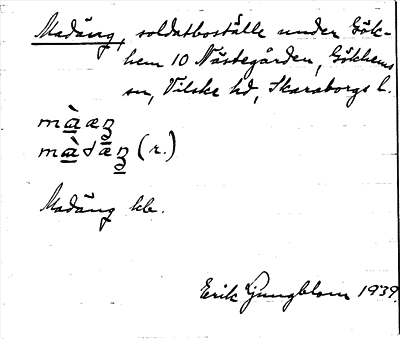 Madäng, soldatboställe under Gök-
hem 10 Nästegården, Gökhems
sn, Vilske hd, Skaraborgs l.
màaŋ
màdäŋ (r.)
Madäng kb.
Erik Ljungblom 1939.